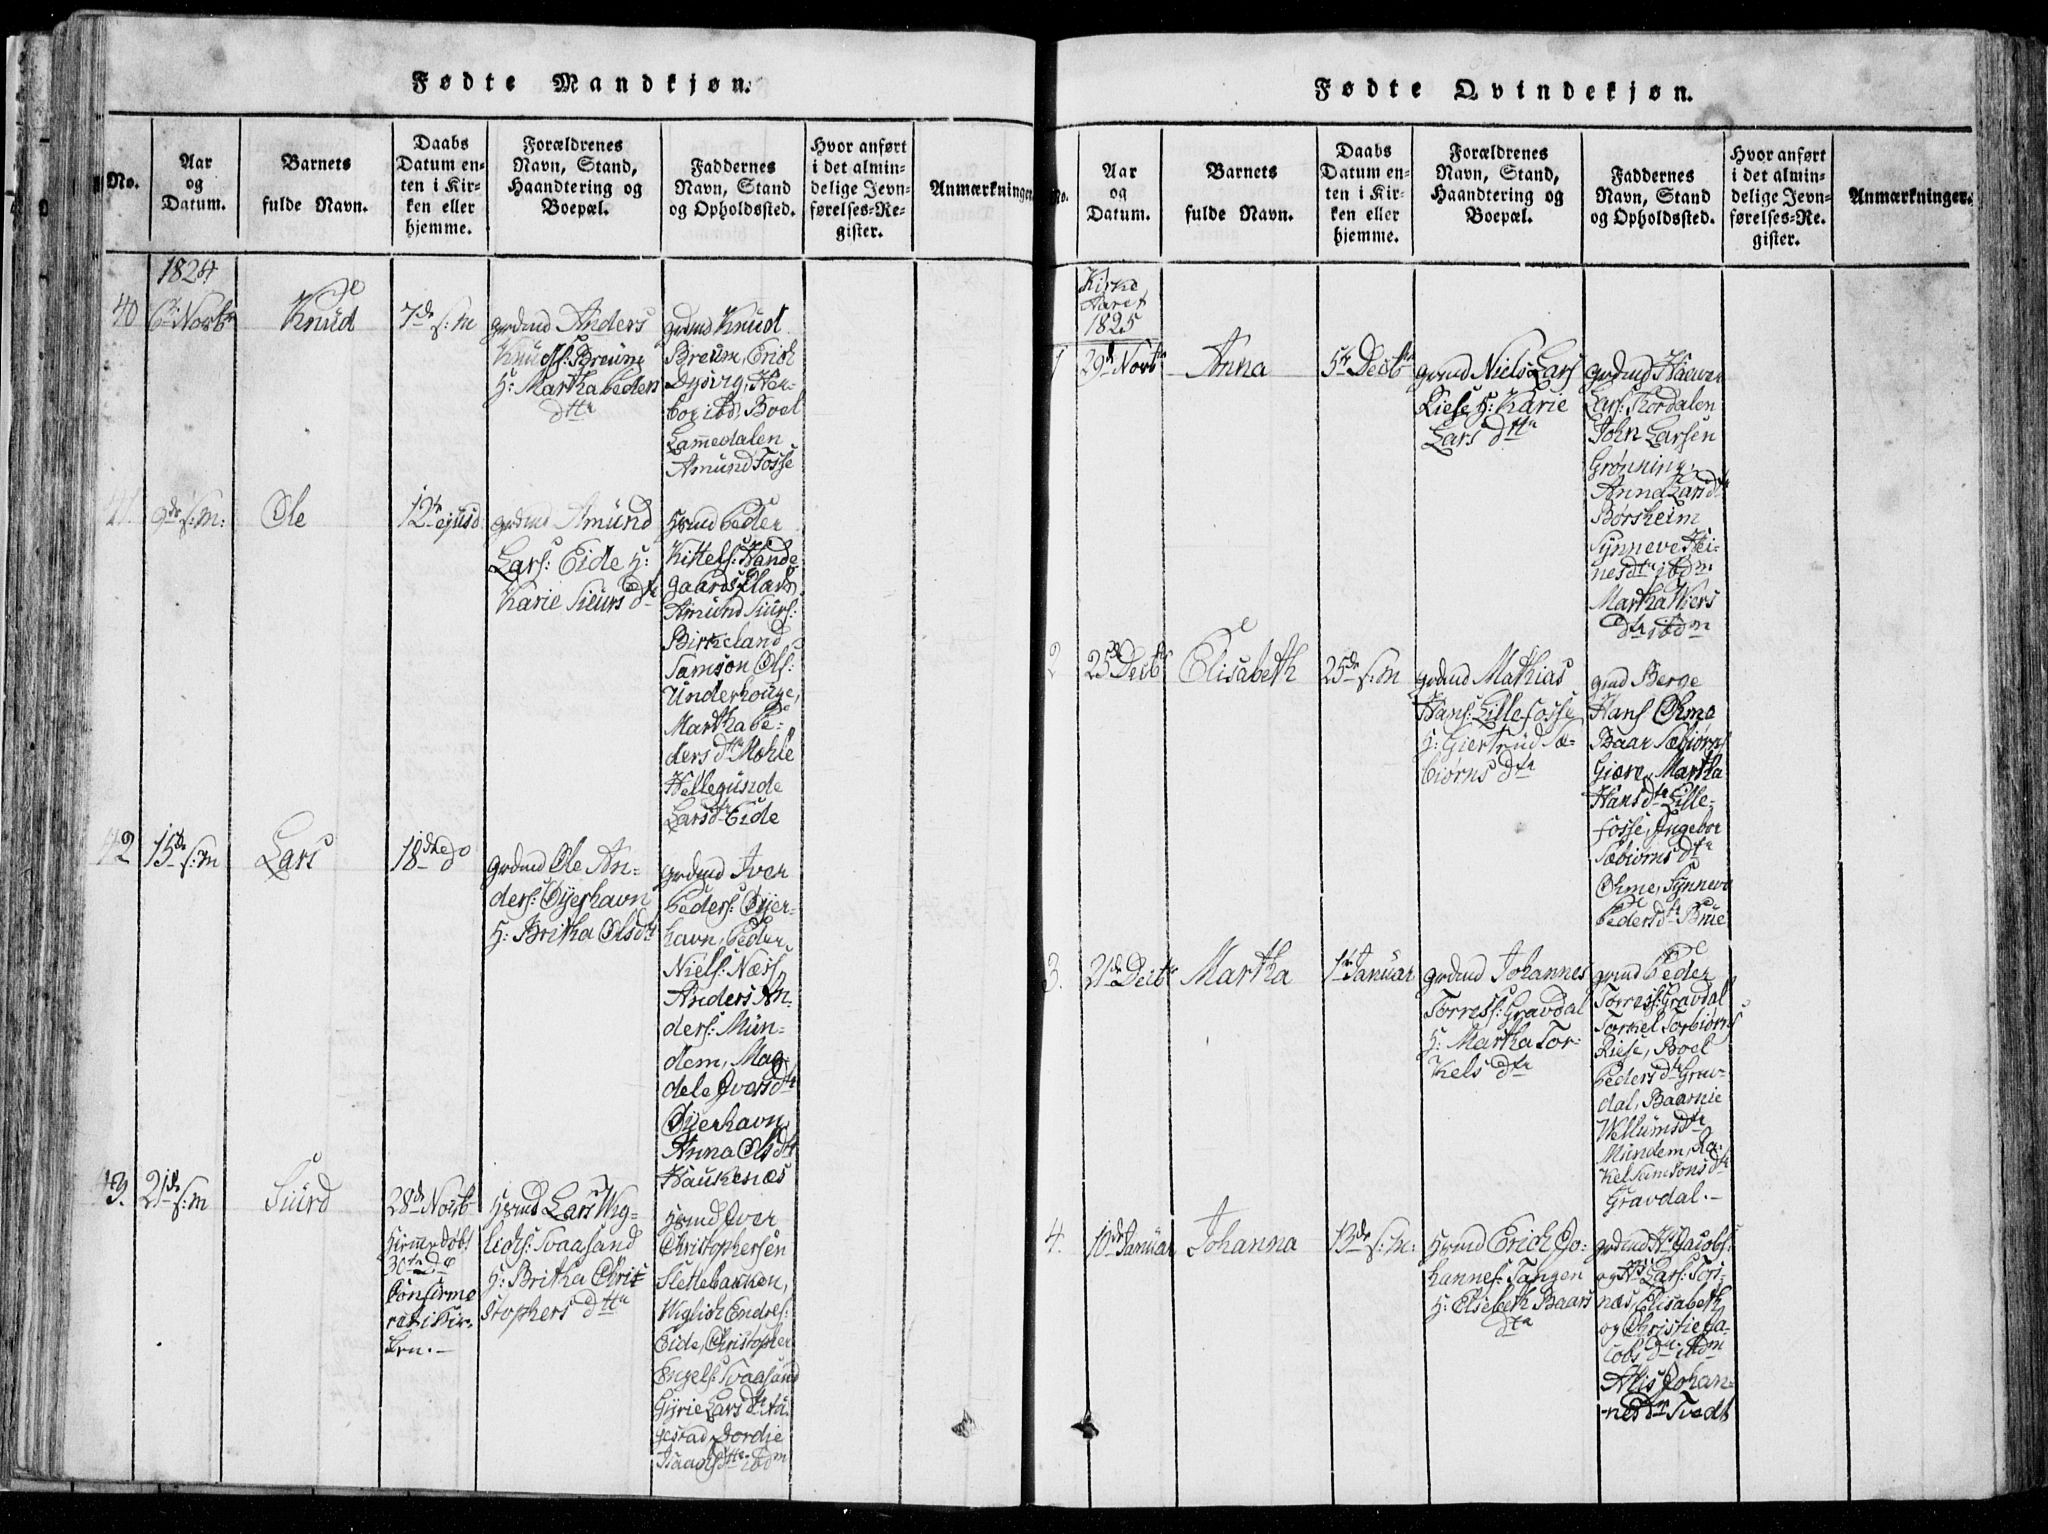 Fødte Mandkjøn.
No.
Aar
og
Datum.
Barnets
fulde Navn.
Daabs
Datum en-
ten i Kir-
ken eller
hjemme.
Forældrenes
Navn, Stand,
Haandtering og
Boepæl.
Faddernes
Navn, Stand
og Opholdssted.
Hvor anført
i det almin-
delige Jevn-
førelses-Re-
gister.
Anmærkninger
1824
40
6te Novbr
Knud
7de s: m
grdmd Anders
Knuds: Breum
H: Martha Peders
dttr
grdmd Knud
Breum, Erich
Dysvig, Her-
bor ibd, Boel
Lamedalen
Amund Fosse
41.
9de s: m:
Ole
12te ejusd
grdmd Amund
Lars: Eide H:
Karie Siurs dtr
Hsmd Peder
Kittels: Hande-
gaards Plads
Amund Siurs:
Birkeland
Samson Ols:
Underhouge,
Martha Pe-
ders dtr Møhle
Hellegunde
Larsdtr Eide
42
15de s: m
Lars
18de do
grdmd Ole An-
ders: Øyerhavn
H: Britha Olsdtr
grdmd Iver
Peders: Øyer-
havn, Peder
Niels: Næss
Anders An-
ders: Mun-
dem, Mag-
dele Iversdtr
Øyerhavn
Anna Olsdtr
Haukenæs
43.
21de s: m
Siurd
28de Novb
hiemmedøbt
30te do
Confirme
ret i Kir-
ken.
Hsmd Lars Wig-
lichs: Svaasand
H: Britha Chri-
stophers dttr
Hsmd Iver
Christophersen
Slettebakken,
Wiglich Endres:
Eide, Christopher
Engels: Svaasand
Gyrie Lars dtr Au-
gestad, Jordie
Isaachs dttr ibdm
Fødte Qvindekjøn.
No.
Aar
og
Datum.
Barnets
fulde Navn.
Daabs
Datum en-
ten i Kir-
ken eller
hjemme.
Forældrenes
Navn, Stand,
Haandtering og
Boepæl.
Faddernes
Navn, Stand
og Opholdssted.
Hvor anført
i det almin-
delige Jevn-
førelses-Re-
gister.
Anmærkninger.
Kirke
Aaret
1825
1
29de Novbr
Anna
5te Decbr
grdmd Niels Lars
Riese H: Karie
Lars dttr
grdmd Haaver
Lars: Thordalen
John Larsen
Grønning,
Anna Larsdtr
Børsheim
Synneve Hei-
nesdtr ibdm:
Martha Niers
dtr ibdm
2
25de Decbr
Elisabeth
25de s: m
grdmd Mathias
Hans: Lillefosse
H: Giertrud Sæ-
biørns dtr
grmd Berge
Hans Øhme
Baar Sæbiørns
Giære, Martha
Hansdtr Lille-
fosse, Ingebor
Sæbiørns dtr
Øhme, Synneve
Pedersdtr Brue
3.
21de Decbr
Martha
1te Januar
grdmd Johannes
Torress: Gravdal
H: Martha Tor-
kels dtr
grmd Peder
Torress: Gravdal
Torkel Torbiørns
Riese, Boel
Peders dtr Grav-
dal, Baarnie
Wellumsdtr
Mundem, Ra-
kel Samsonsdtr
Gravdal.
4.
10de Januar
Johanna
13de s: m:
Hsmd Erich Jo-
hannes: Tangen
H: Elsebeth Baars
dtr
grdmd Ns Jacobs:
og Ns Lars: Tors-
næs, Elisabeth
og Christie Ja-
cobs dtr ibdm
Alis Johan-
nesdtr Tvedt